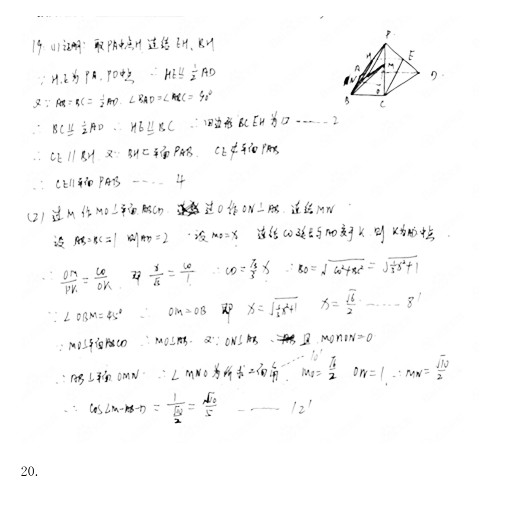 19. (1)证明: 取PA中点H 连结 EH、BH
∵ H、E为 PA、PD中点 ∴ HE∥=½AD
又∵ AB=BC=½AD. ∠BAD=∠ABC=90°
∴ BC∥=½AD ∴ HE∥=BC ∴ 四边形BCEH为▱ ------ 2
∴ CE∥BH 又∵ BH⊂平面PAB. CE⊄平面PAB
∴ CE∥平面PAB ------ 4
(2) 过M作MO⊥平面ABCD. 过O作ON⊥AB. 连结MN
设 AB=BC=1 则AD=2 设MO=x 连结CO 延长与AD交于K 则 K为AD中点
∴ OM/PK = CO/CK 即 x/√3 = CO/1 ∴ CO=√3/3 x ∴ BO=√(CO²+BC²)=√(⅓x²+1)
∵ ∠OBM=45° ∴ OM=OB 即 x=√(⅓x²+1) x=√6/2 ------ 8'
∵ MO⊥平面ABCD ∴ MO⊥AB. 又∵ ON⊥AB 且 MO∩ON=O
∴ AB⊥平面OMN ∴ ∠MNO为所求二面角 10' MO=√6/2 ON=1. ∴ MN=√10/2
∴ cos∠M-AB-D = 1/(√10/2) = √10/5 ------ 12'
P
H
E
A
M
N
D
O
B
C
20.